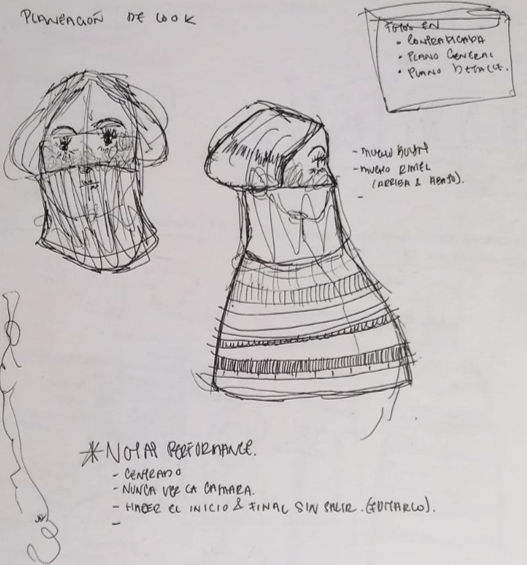 PLANEACIÓN DE LOOK
FOTOS EN
• CONTRAPICADA
• PLANO GENERAL
• PLANO DETALLE.
- MUCHO
- MUCHO RIMEL
(ARRIBA & ABAJO).
-
* NOTAS PERFORMANCE.
- CENTRADO
- NUNCA VER LA CAMARA.
- HACER EL INICIO & FINAL SIN SALIR. (EDITARLO).
-